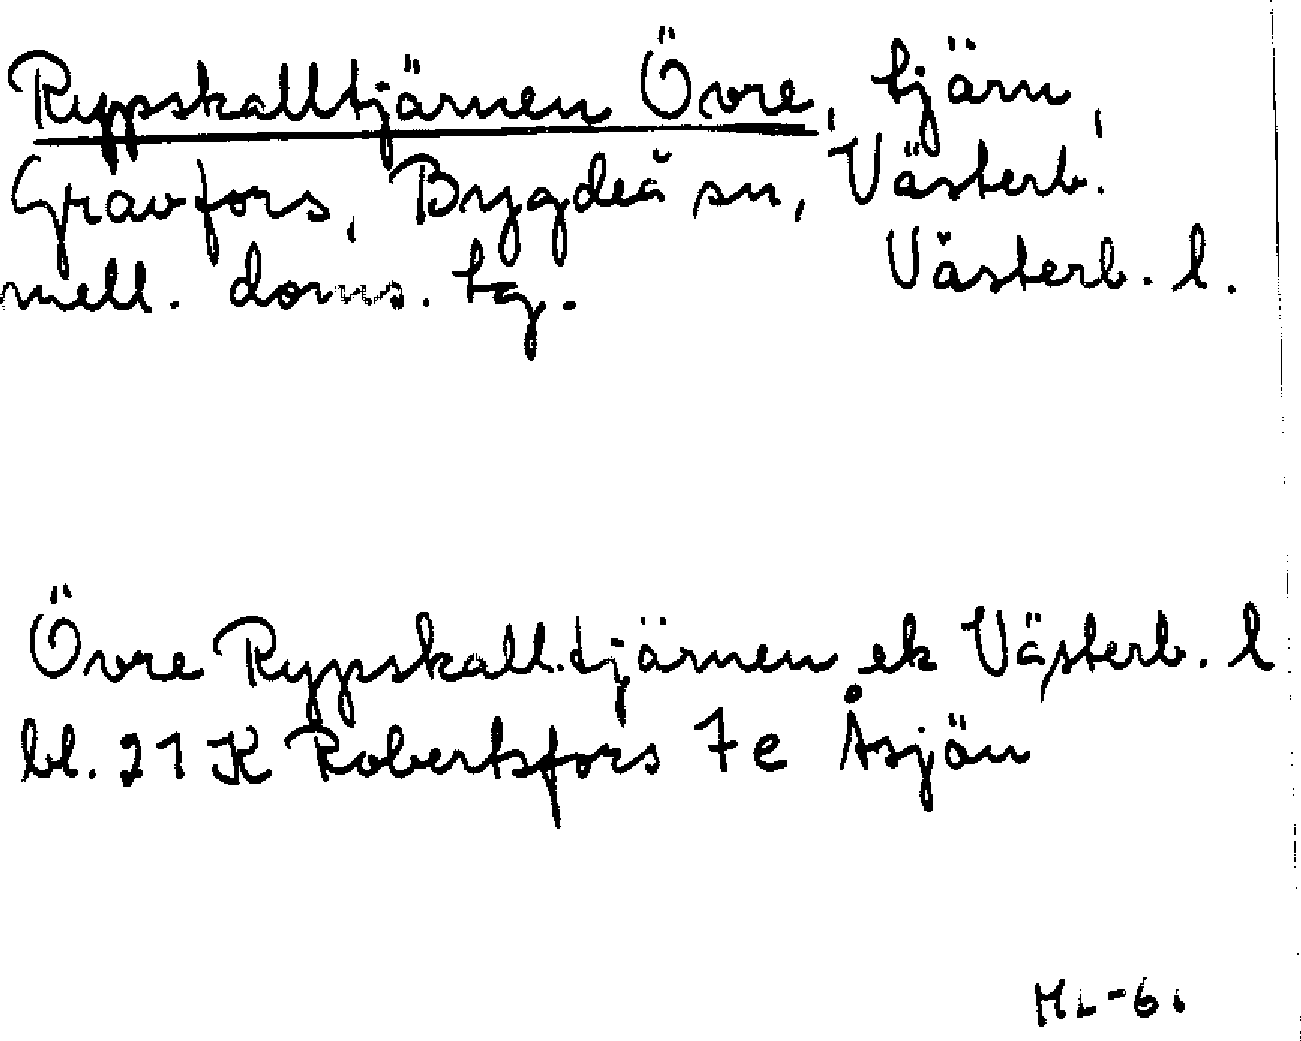 Rypskalltjärnen Övre, tjärn,
Gravfors, Bygdeå sn, Västerb.
mell. doms. tg. Västerb. l.
Övre Rypskalltjärnen ek Västerb. l
bl. 21 K Robertsfors 7e Åsjön